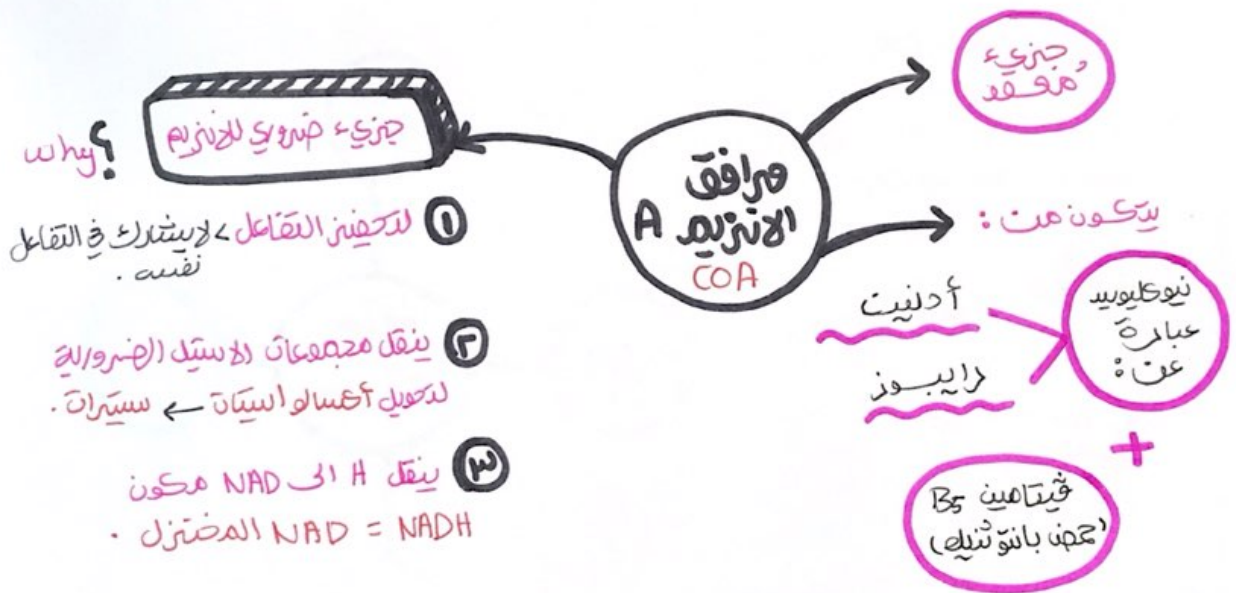 مرافق
الانزيم A
COA
جزيء
مُعقد
يتكون من :
نيوكليوسيد
عبارة
عن :
أدنين
رايبوز
+
ڤيتامين B5
(حمض بانتوثنيك)
جزيء ضروري للانزيم
why؟
① لتحفيز التفاعل > لا يشارك في التفاعل
نفسه .
② ينقل مجموعات الاستيل الضرورية
لتحويل أكسالو أسيتات ← سيترات .
③ ينقل H الى NAD مكون
NADH = NAD المختزل .